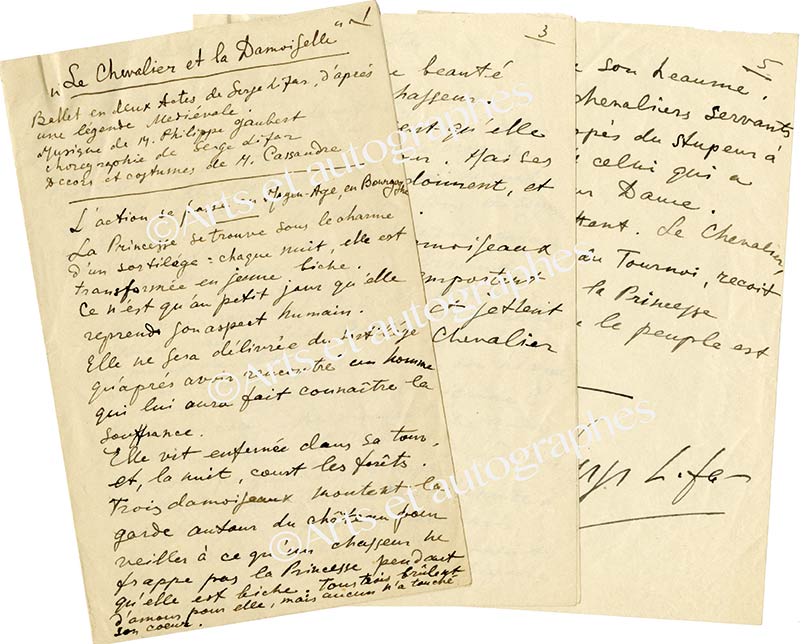 1
"Le Chevalier et la Damoiselle"
Ballet en deux Actes, de Serge Lifar, d'après
une légende Médiévale.
Musique de M. Philippe Gaubert
Chorégraphie de Serge Lifar
Décors et costumes de M. Cassandre
L'action se passe au Moyen-Age, en Bourgogne
La Princesse se trouve sous le charme
d'un sortilège : chaque nuit, elle est
transformée en jeune biche.
Ce n'est qu'au petit jour qu'elle
reprend son aspect humain.
Elle ne sera délivrée du sortilège
qu'après avoir rencontré un homme
qui lui aura fait connaître la
souffrance.
Elle vit enfermée dans sa tour,
et, la nuit, court les forêts.
Trois damoiseaux montent la
garde autour du château pour
veiller à ce qu'un chasseur ne
frappe pas la Princesse pendant
qu'elle est biche. Tous trois brûlent
d'amour pour elle, mais aucun n'a touché
son coeur.
3
beauté
chasseur.
qu'elle
Mais ses
et
damoiseaux
se jettent
Chevalier
5
son heaume.
chevaliers servants
de stupeur à
celui qui a
Dame.
Le Chevalier,
du Tournoi, reçoit
la Princesse
le peuple est
Serge Lifar
©Arts et autographes
©Arts et autographes
©Arts et autographes
©Arts et autographes